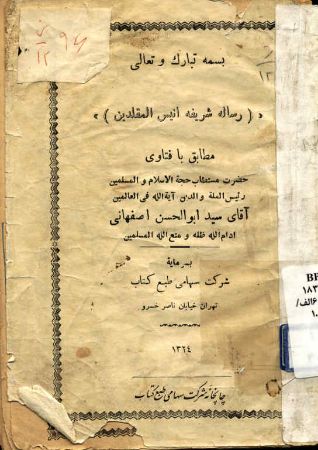 بسمه تبارك و تعالى
« ( رساله شريفه انيس المقلدين ) »
مطابق با فتاوى
حضرت مستطاب حجة الاسلام و المسلمين
رئيس الملة و الدين آية الله فى العالمين
آقاى سيد ابوالحسن اصفهانى
ادام الله ظله و متع الله المسلمين
بسرماية
شركت سهامى طبع كتاب
تهران خيابان ناصر خسرو
۱۳۲٤
چاپخانه شركت سهامى طبع كتاب
BP
۱۸۳